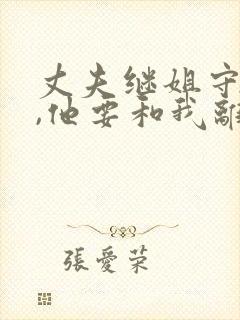 丈夫继姐守
,他要和我離
張愛荣